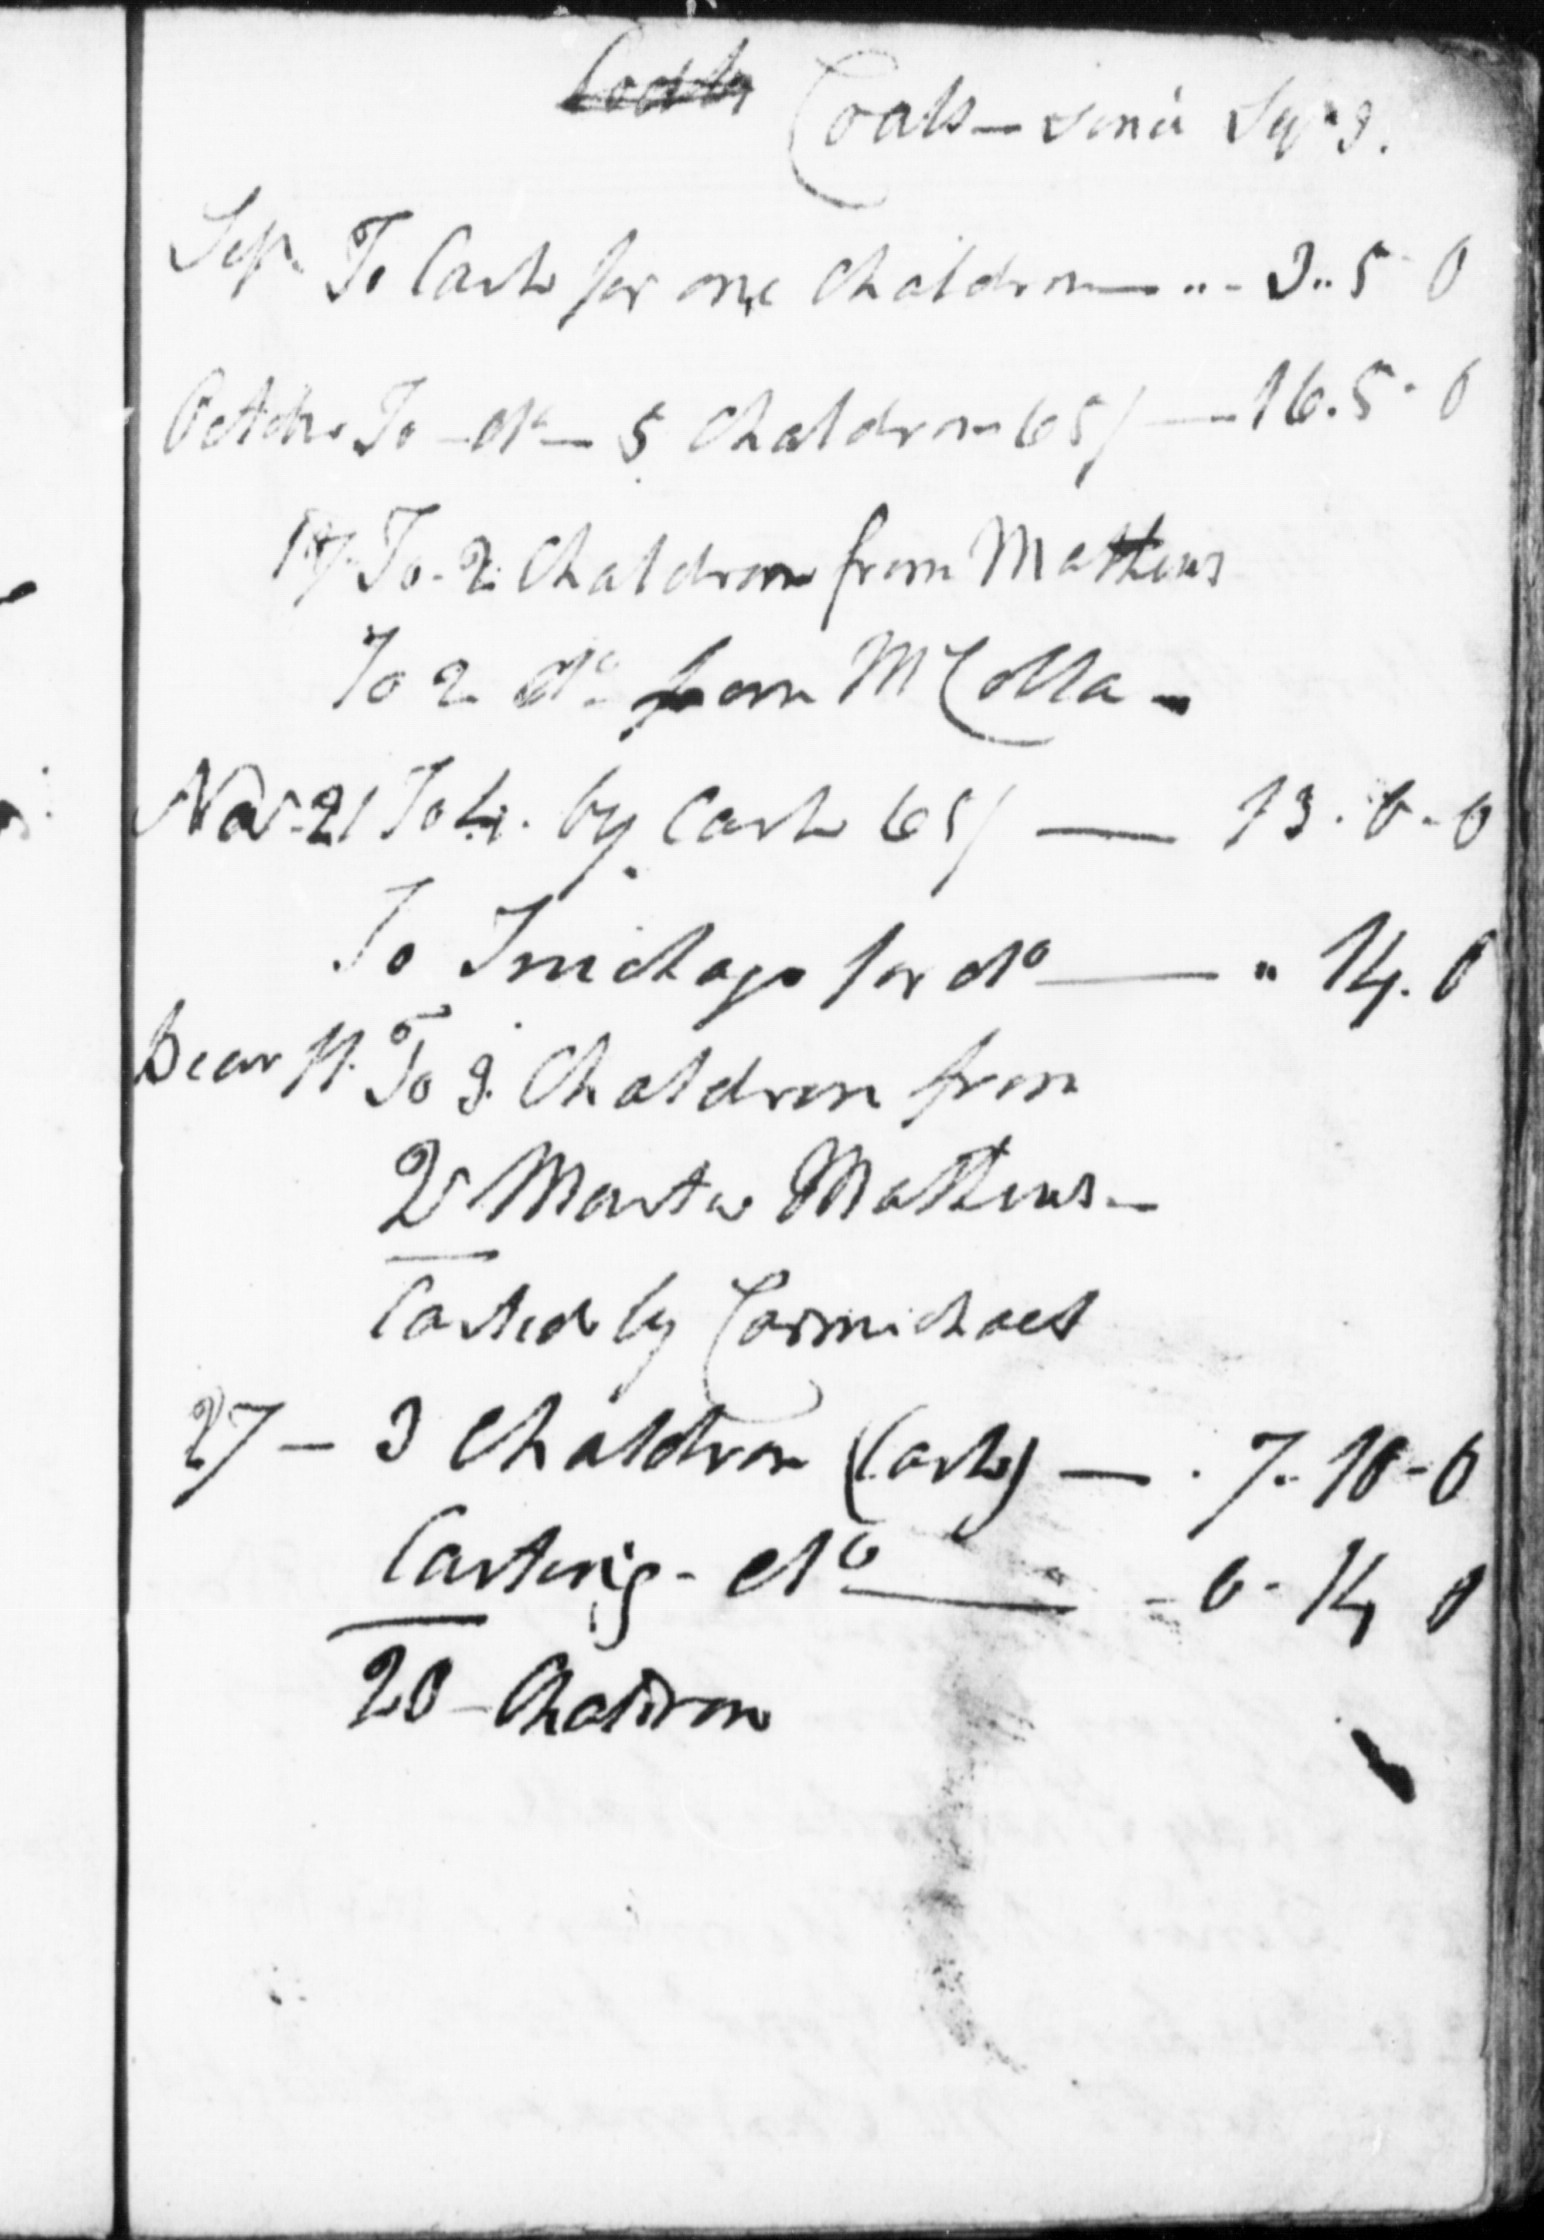 Coals — since Sepr 9.
Sepr. To Cash for one Chaldron — .. - 3..5-0
Octobr. To - do - 5 Chaldron 65/ — 16.5-0
17 To 2 Chaldron from Mathews
To 2 do from McColla -
Novr 21 To 4. by Cash 65/ — 13.0-0
To Truckage for do — " 14.0
Decemr 11. To 3 Chaldron from
Mathews -
Carted by Carmichael
27 - 3 Chaldron (Cash) — . 7..10-0
Carting - do — - 0-14 0
20 - Chaldron